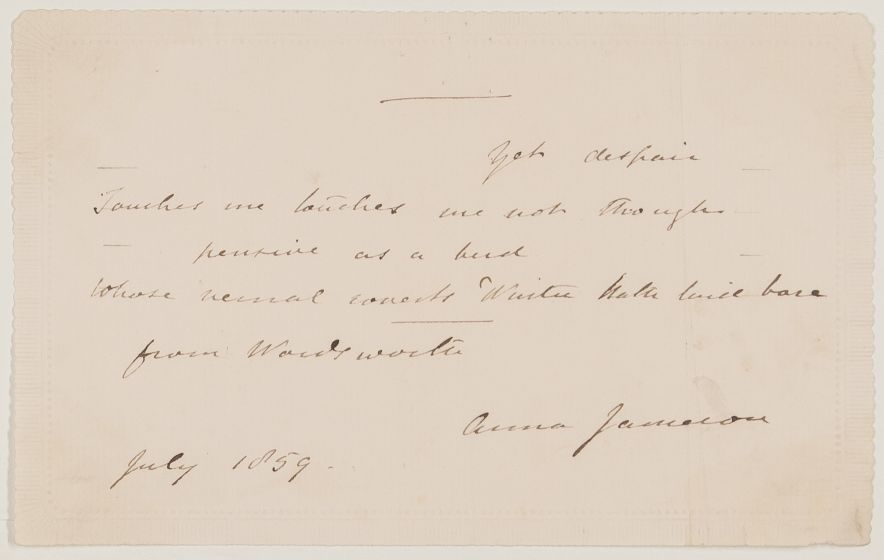 Yet despair
Touches me touches me not though
pensive as a bird
Whose vernal coverts Winter Hath laid bare
from Wordsworth
Anna Jameson
July 1859.